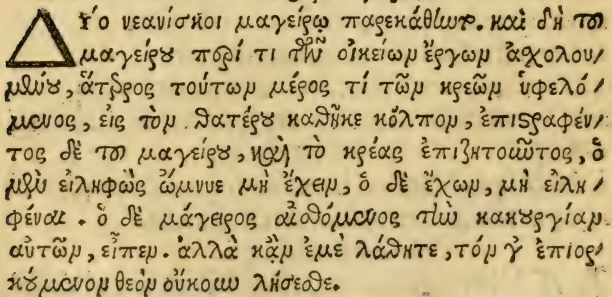 Δύο νεανίσκοι μαγείρῳ παρεκάθιωτο. καὶ δὴ τοῦ
μαγείρου περί τι τῶν οἰκείων ἔργων ἀσχολου-
μένου, ἅτερος τούτων μέρος τί τῶν κρεῶν ὑφελό-
μενος, εἰς τὸν θατέρου καθῆκε κόλπον, ἐπιστραφέν-
τος δὲ τοῦ μαγείρου, καὶ τὸ κρέας ἐπιζητοῦντος, ὁ
μὲν εἰληφὼς ὤμνυε μὴ ἔχειν, ὁ δὲ ἔχων, μὴ εἰλη-
φέναι. ὁ δὲ μάγειρος αἰσθόμενος τὴν κακουργίαν
αὐτῶν, εἶπεν. ἀλλὰ κἂν ἐμὲ λάθητε, τόν γ' ἐπιορ-
κούμενον θεὸν οὔκουν λήσεσθε.